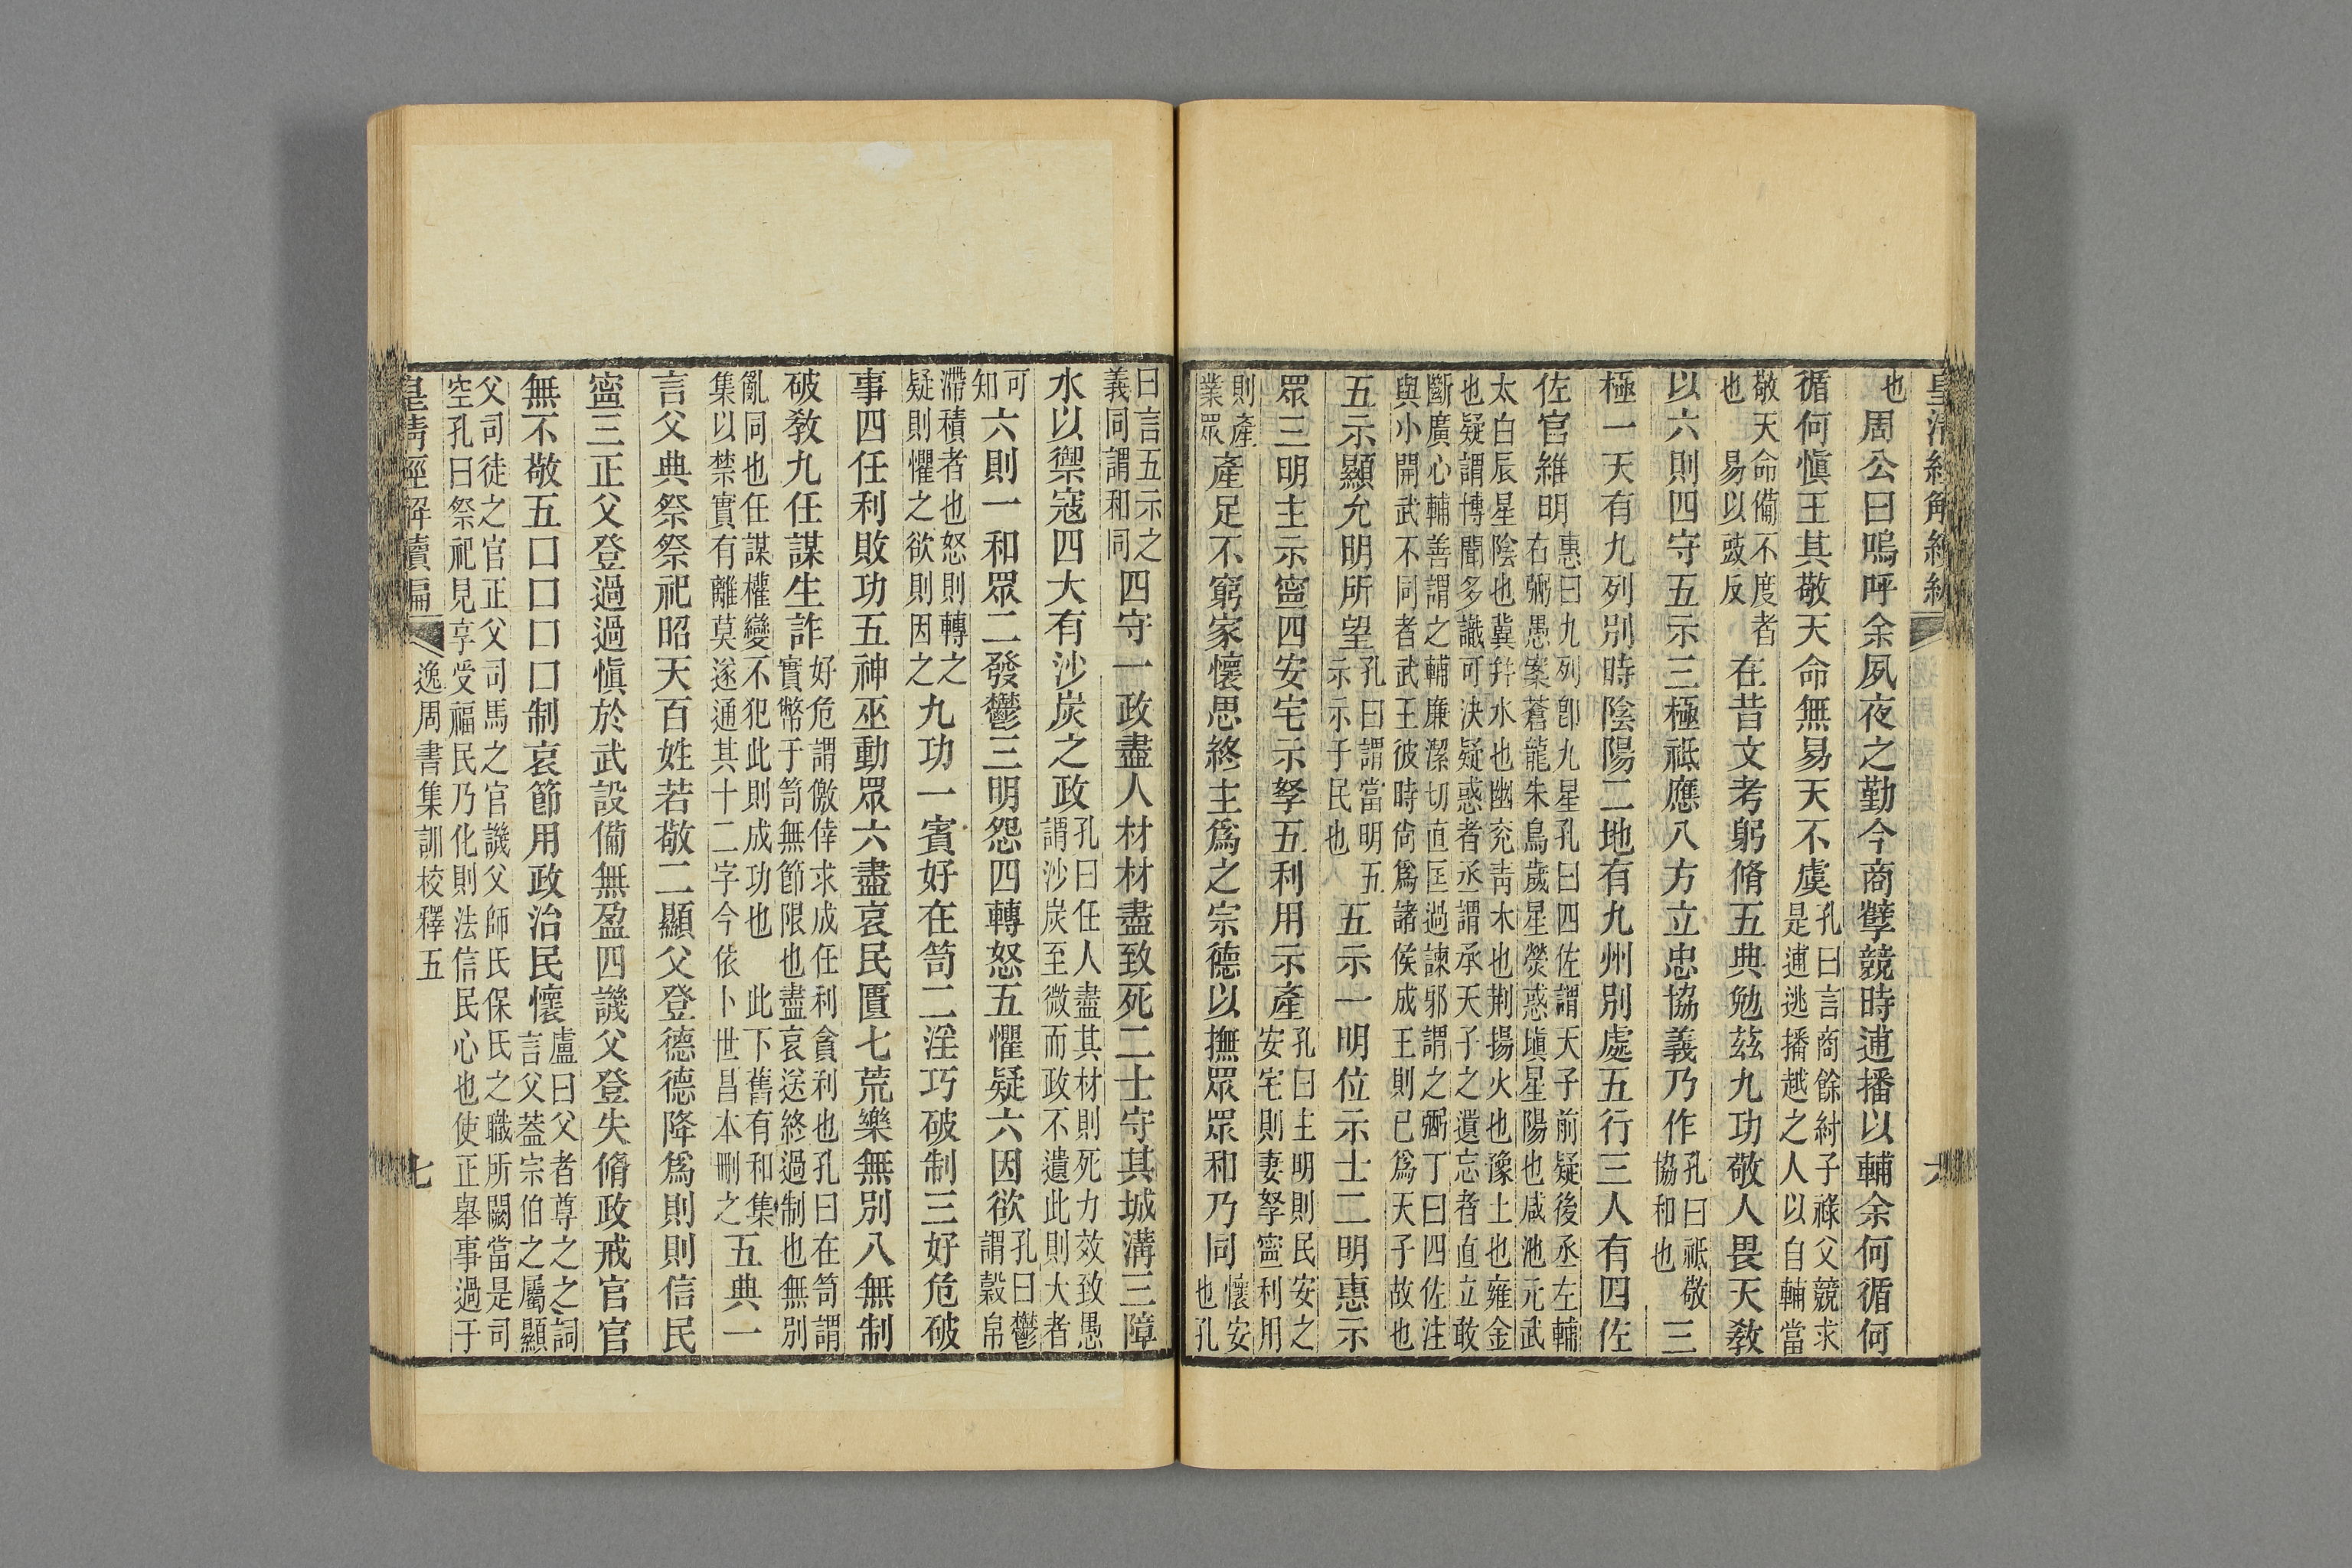 皇清經解續編 六
也周公曰嗚呼余夙夜之勤今商孽競時逋播以輔余何循何
循何愼王其敬天命無易天不虞孔曰言商餘紂子祿父競求
是逋逃播越之人以自輔當
敬天命備不度者
也 易以豉反 在昔文考躬脩五典勉茲九功敬人畏天教
以六則四守五示三極祗應八方立忠協義乃作孔曰祗敬
協和也三
極一天有九列別時陰陽二地有九州別處五行三人有四佐
佐官維明惠曰九列卽九星孔曰四佐謂天子前疑後丞左輔
右弼愚案蒼龍朱鳥歲星熒惑塡星陽也咸池元武
太白辰星陰也冀幷水也幽兖靑木也荆揚火也豫土也雍金
也疑謂博聞多識可決疑惑者丞謂承天子之遺忘者直立敢
斷廣心輔善謂之輔廉潔切直匡過諫邪謂之弼丁曰四佐注
與小開武不同者武王彼時尙爲諸侯成王則已爲天子故也
五示顯允明所望孔曰謂當明五
示示于民也 五示一明位示士二明惠示
眾三明主示寧四安宅示孥五利用示產孔曰主明則民安之
安宅則妻孥寧利用
則產
業眾產足不窮家懷思終主爲之宗德以撫眾眾和乃同懷安
也孔
曰言五示之
義同謂和同四守一政盡人材材盡致死二士守其城溝三障
水以禦寇四大有沙炭之政孔曰任人盡其材則死力效致愚
謂沙炭至微而政不遺此則大者
可
知六則一和眾二發鬱三明怨四轉怒五懼疑六因欲孔曰鬱
謂穀帛
滯積者也怒則轉之
疑則懼之欲則因之九功一賓好在笥二淫巧破制三好危破
事四任利敗功五神巫動眾六盡哀民匱七荒樂無別八無制
破教九任謀生詐好危謂儌倖求成任利貪利也孔曰在笥謂
實幣于笥無節限也盡哀送終過制也無別
亂同也任謀權變不犯此則成功也 此下舊有和集
集以禁實有離莫遂通其十二字今依卜世昌本刪之五典一
言父典祭祭祀昭天百姓若敬二顯父登德德降爲則則信民
寧三正父登過過愼於武設備無盈四譏父登失脩政戒官官
無不敬五囗囗囗囗制哀節用政治民懷盧曰父者尊之之詞
言父蓋宗伯之屬顯
父司徒之官正父司馬之官譏父師氏保氏之職所闕當是司
空孔曰祭祀見享受福民乃化則法信民心也使正舉事過于
皇清經解續編 逸周書集訓校釋五 七